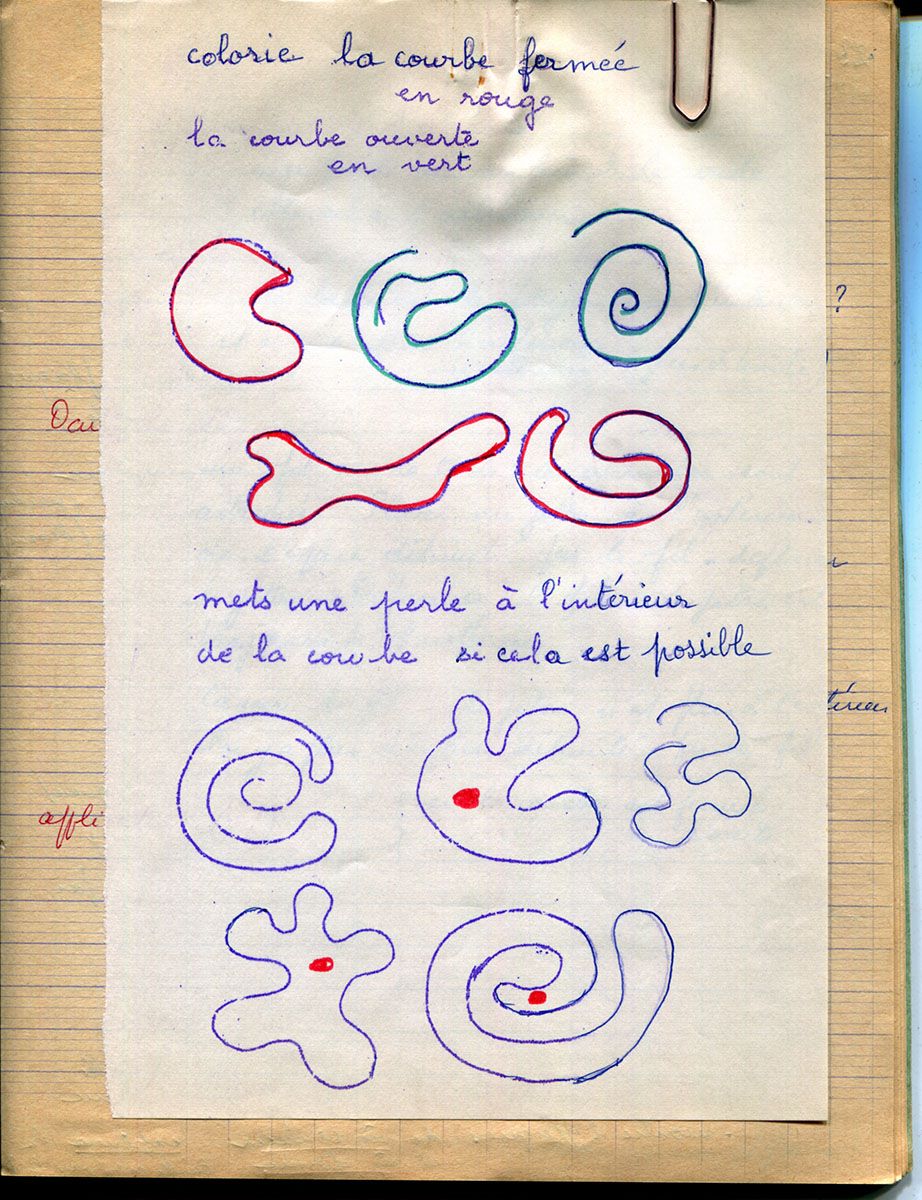 colorie la courbe fermée
en rouge
la courbe ouverte
en vert
?
mets une perle à l'intérieur
de la courbe si cela est possible
appli